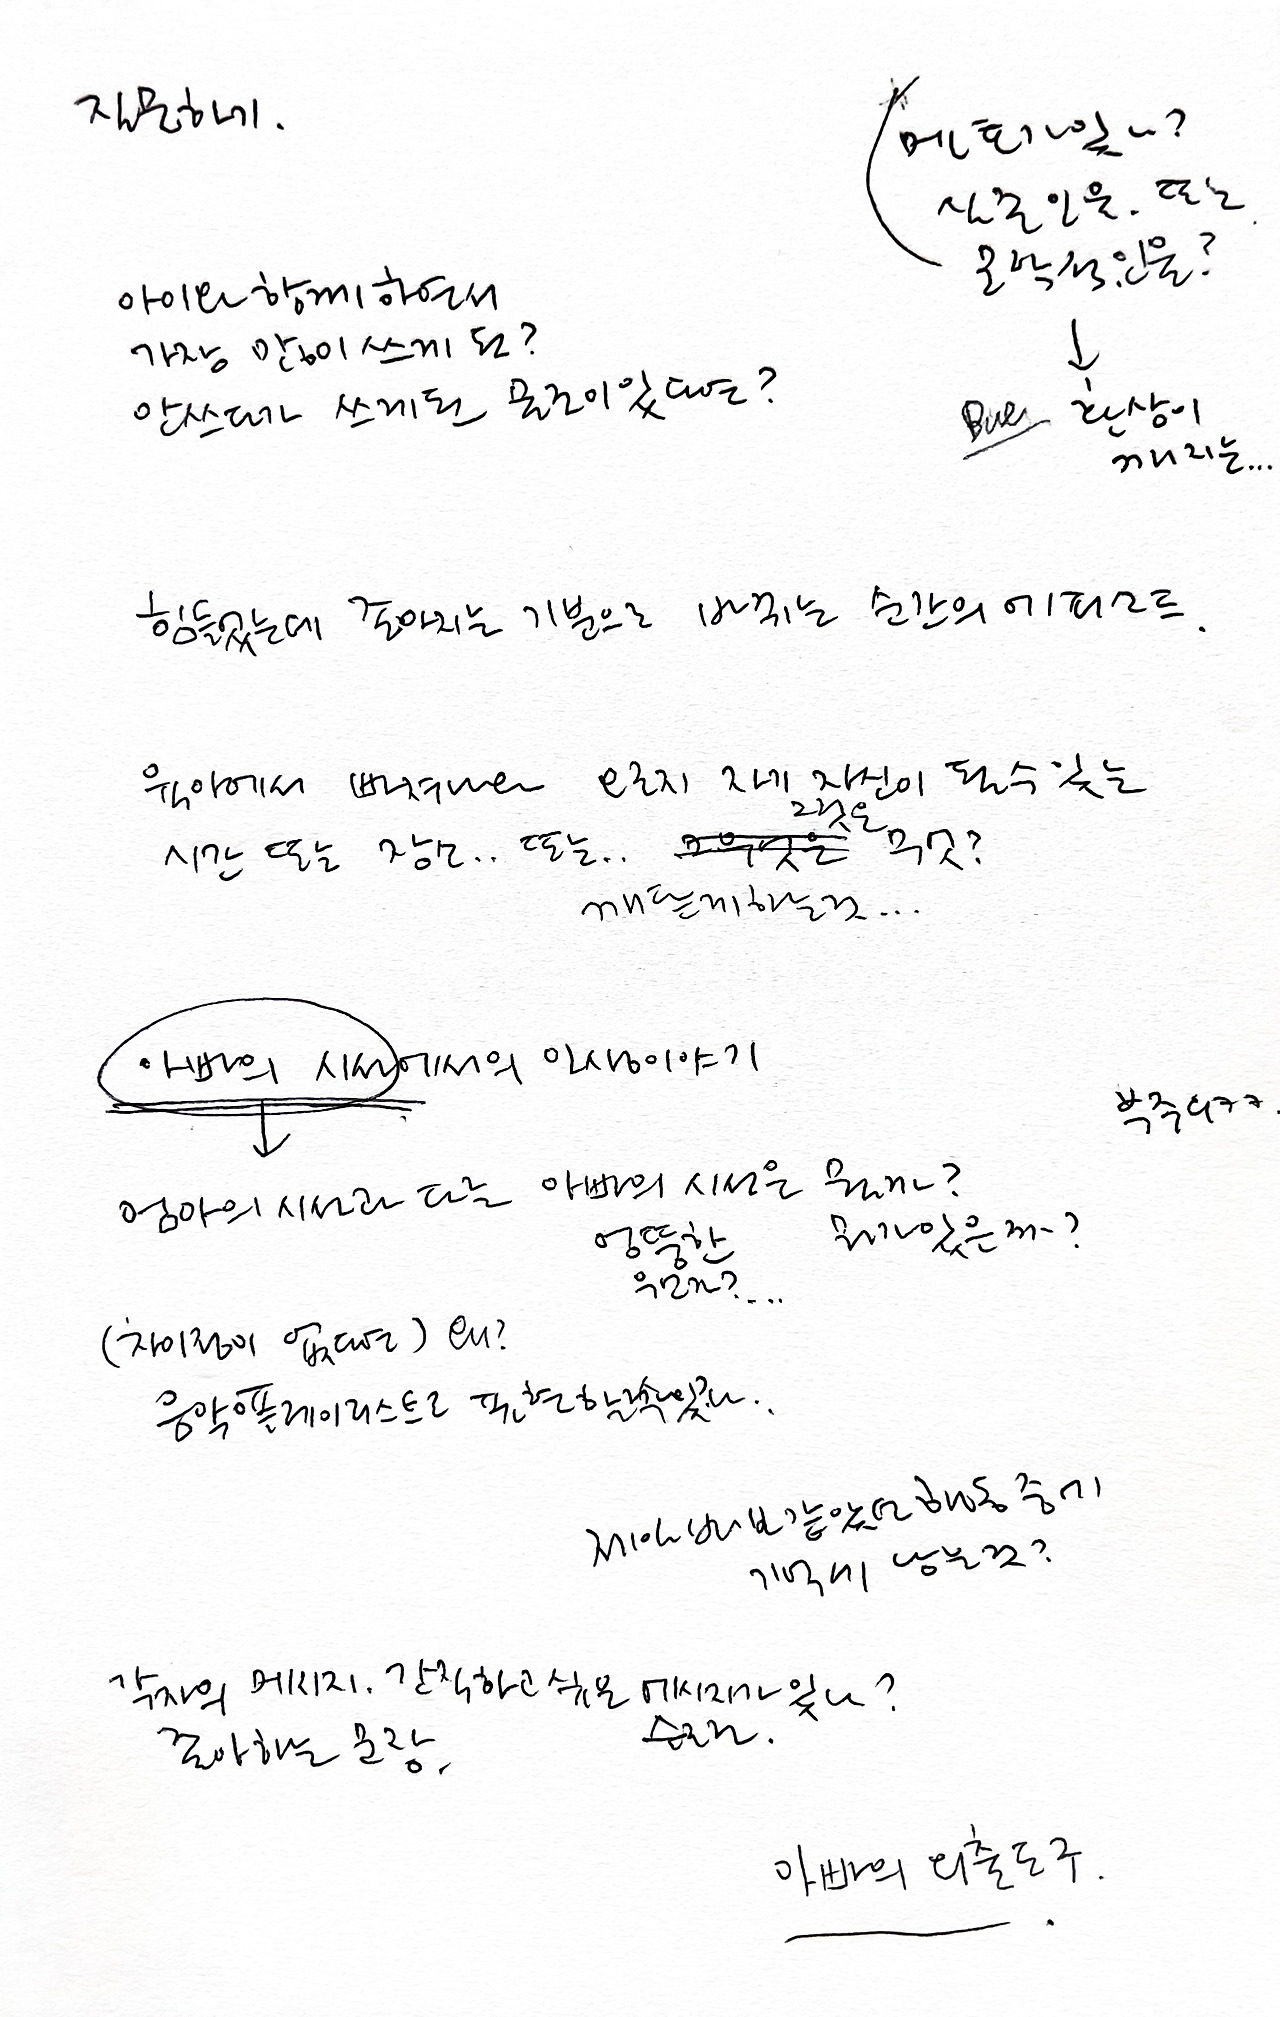 질문하기.
멘토가 있나?
실존인물. 또는
문학적인물?
환상이
깨지는...
아이와 함께하면서
가장 많이 쓰게 된?
안쓰다가 쓰게된 물건이있다면?
힘들었는데 좋아지는 기분으로 바뀌는 순간의 에피소드.
육아에서 벗어나 오로지 자기 자신이 될수있는
그것은
시간 또는 장소.. 또는.. 무엇?
깨닫게하는것...
아빠의 시선에서의 일상이야기
엄마의 시선과 다른 아빠의 시선은 뭘까?
엉뚱한 뭐가있을까?
유머?...
(차이점이 없다면) 왜?
음악플레이리스트로 표현할수있나..
제일 바보같았던 행동 중에
기억에 남는것?
각자의 메시지. 간직하고 싶은 메시지가 있나?
좋아하는 문장,
아빠의 외출도구.